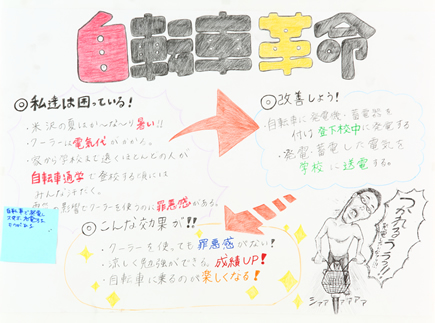 自転車革命
◎私達は困っている!
・米沢の夏はか〜な〜り暑い!!
・クーラーは電気代がかかる。
・家から学校まで遠くほとんどの人が
自転車通学で登校する頃には
みんな汗だく。
の影響でクーラーを使うのに罪悪感がある。
◎改善しよう!
・自転車に発電機・蓄電器を
付け登下校中に発電する
・発電・蓄電した電気を
学校に送電する。
◎こんな効果が!!
・クーラーを使っても罪悪感がない!
・涼しく勉強ができる。成績UP!
・自転車に乗るのが楽しくなる!
自転車で発電し